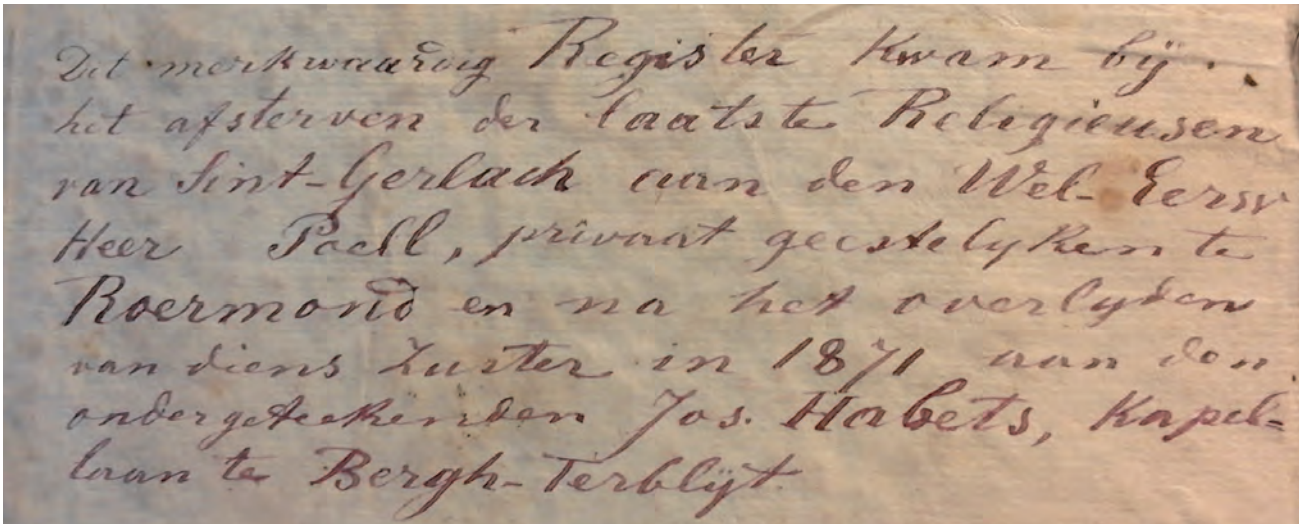 Dit merkwaardig Register kwam bij
het afsterven der laatste Religieusen
van Sint-Gerlach aan den Wel-Eerw
Heer Paell, privaat geestelyken te
Roermond en na het overlyden
van diens Zuster in 1871 aan den
ondergeteekenden Jos. Habets, Kapel-
laan te Bergh-Terblijt.